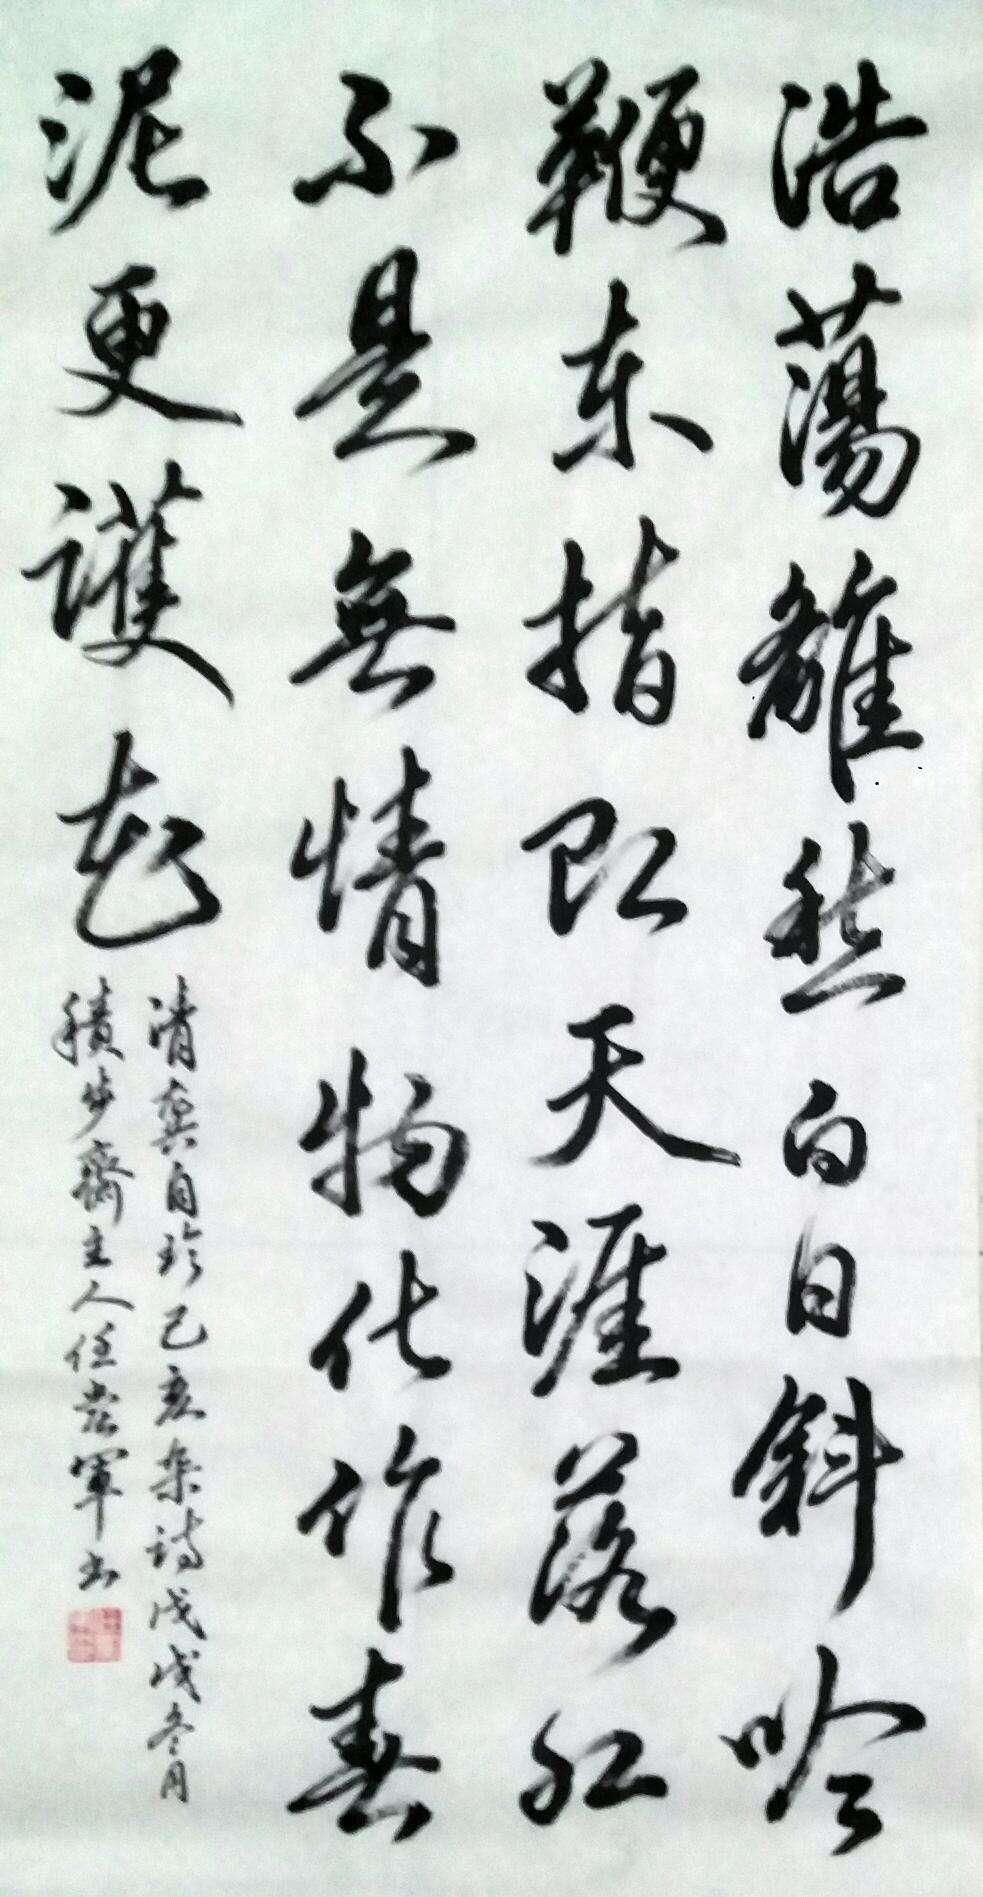 浩蕩離愁白日斜吟
鞭东指即天涯落红
不是無情物化作春
泥更護花
清龔自珍己亥杂诗戊戌冬月
積步齋主人任崇軍书